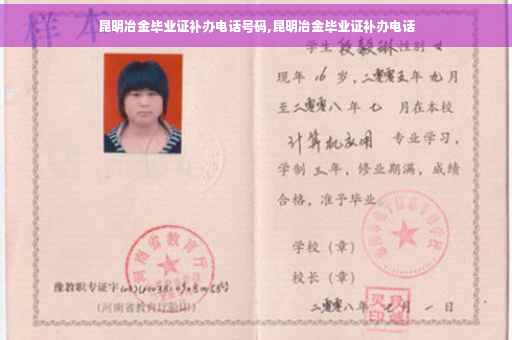 昆明冶金毕业证补办电话号码,昆明冶金毕业证补办电话
样本
学生段毅琳性别女
现年16岁,二零零五年九月
至二零零八年七月在本校
计算机应用专业学习,
学制三年,修业期满,成绩
合格,准予毕业
学校(章)
校长(章)
二零零八年七月一日
河南省教育厅
豫教职专证字
(河南省教育厅验印)